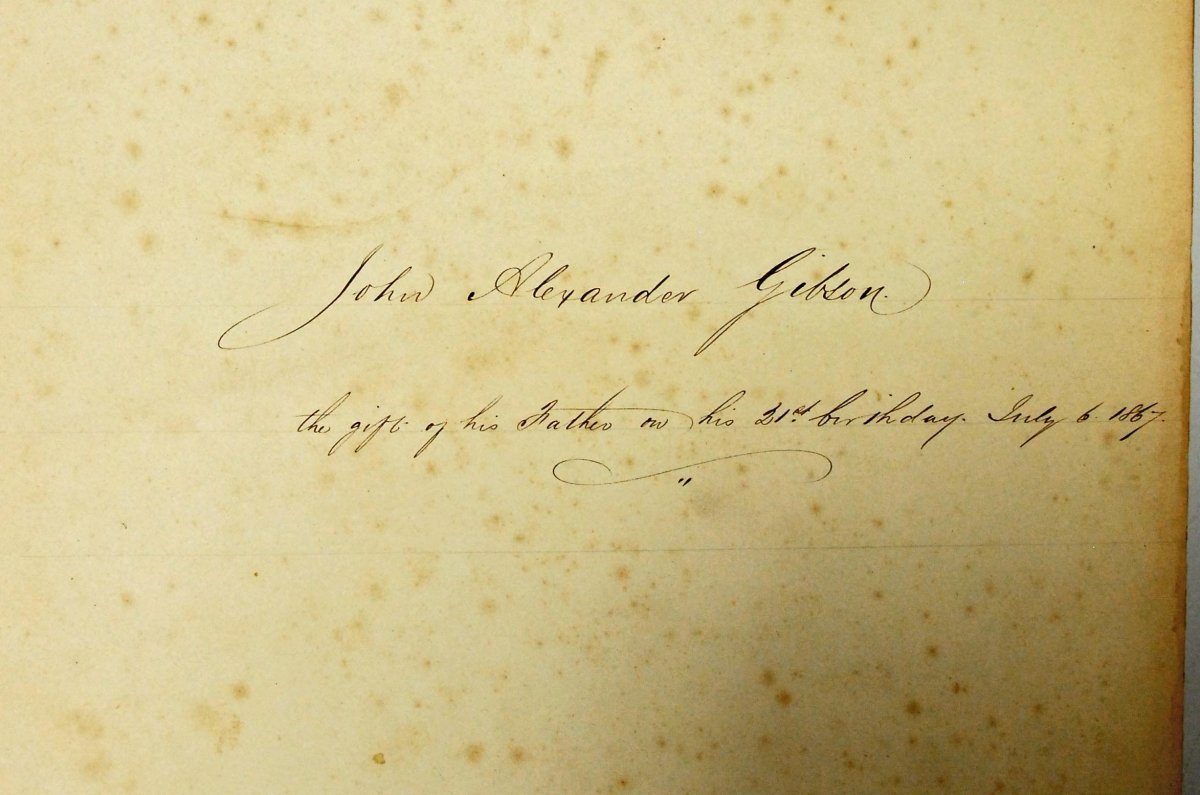 John Alexander Gibson.
the gift of his Father on his 21st birthday. July 6. 1867.